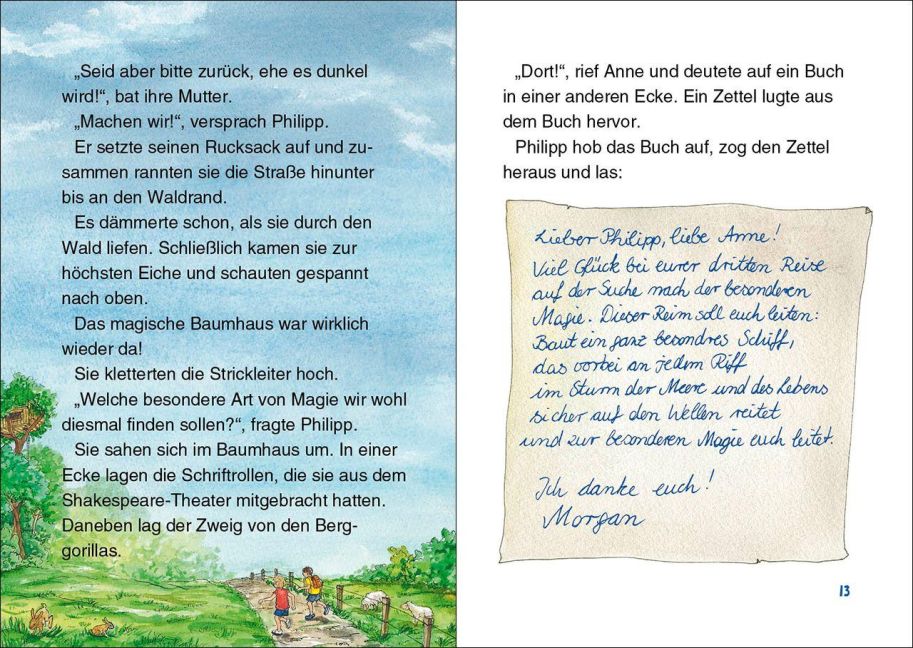 „Seid aber bitte zurück, ehe es dunkel
wird!“, bat ihre Mutter.
„Machen wir!“, versprach Philipp.
Er setzte seinen Rucksack auf und zu-
sammen rannten sie die Straße hinunter
bis an den Waldrand.
Es dämmerte schon, als sie durch den
Wald liefen. Schließlich kamen sie zur
höchsten Eiche und schauten gespannt
nach oben.
Das magische Baumhaus war wirklich
wieder da!
Sie kletterten die Strickleiter hoch.
„Welche besondere Art von Magie wir wohl
diesmal finden sollen?“, fragte Philipp.
Sie sahen sich im Baumhaus um. In einer
Ecke lagen die Schriftrollen, die sie aus dem
Shakespeare-Theater mitgebracht hatten.
Daneben lag der Zweig von den Berg-
gorillas.
„Dort!“, rief Anne und deutete auf ein Buch
in einer anderen Ecke. Ein Zettel lugte aus
dem Buch hervor.
Philipp hob das Buch auf, zog den Zettel
heraus und las:
Lieber Philipp, liebe Anne!
Viel Glück bei eurer dritten Reise
auf der Suche nach der besonderen
Magie. Dieser Reim soll euch leiten:
Baut ein ganz besondres Schiff,
das vorbei an jedem Riff
im Sturm der Meere und des Lebens
sicher auf den Wellen reitet
und zur besonderen Magie euch leitet.
Ich danke euch!
Morgan
13